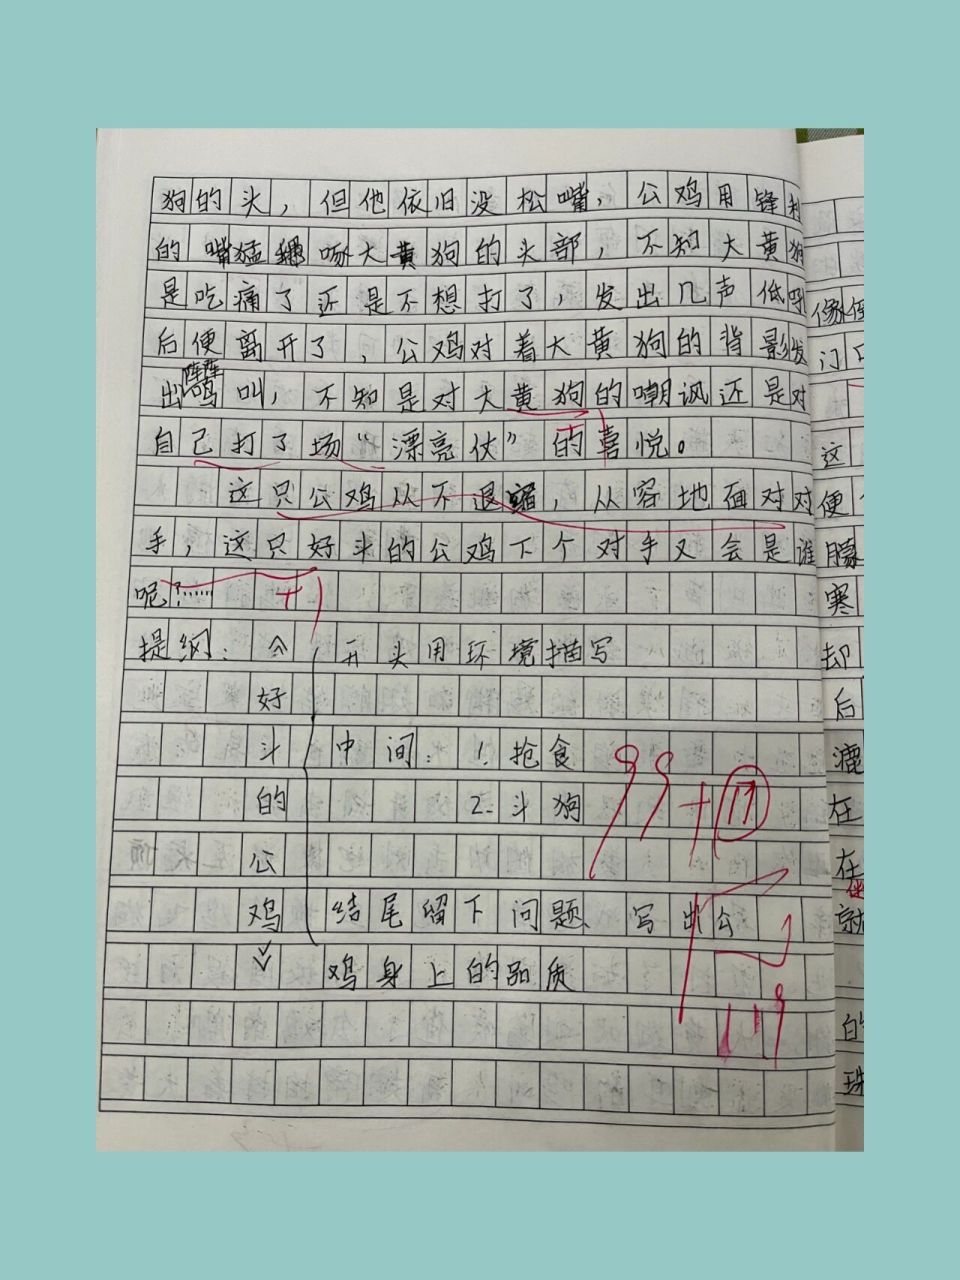 狗的头，但他依旧没松嘴，公鸡用锋利
的嘴猛啄大黄狗的头部，不知大黄狗
是吃痛了还是不想打了，发出几声低呼
后便离开了，公鸡对着大黄狗的背影发
出阵阵鸣叫，不知是对大黄狗的嘲讽还是对
自己打了场“漂亮仗”的喜悦。
这只公鸡从不退缩，从容地面对对
手，这只好斗的公鸡下个对手又会是谁
呢？……
+1
提纲：《好斗的公鸡》
开头用环境描写
中间：1. 抢食
2. 斗狗
结尾留下问题、写出公
鸡身上的品质
99+17
119
像
门只
这
便
朦
寒
却
后
漉
在
在
就
的
珠